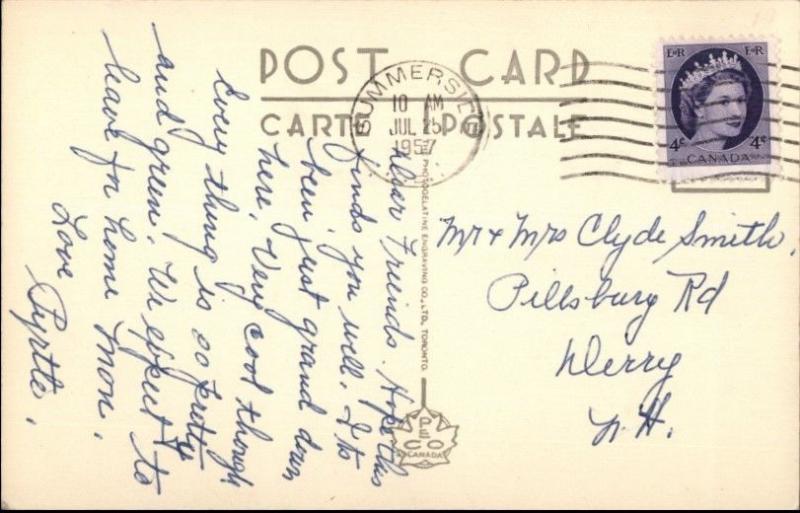 POST CARD
CARTE POSTALE
SUMMERSIDE
10 AM
JUL 25
1957
E R E R
4c 4c
CANADA
Dear Friends. Hope this
finds you well. It
been just grand down
here. Very cool though
Every thing is so pretty
and green. We expect to
leave for home Mon.
Love
Pyrtle.
PHOTOGELATINE ENGRAVING CO., LTD. TORONTO.
CO
CANADA
Mr & Mrs Clyde Smith,
Pillsbury Rd
Derry
N.H.